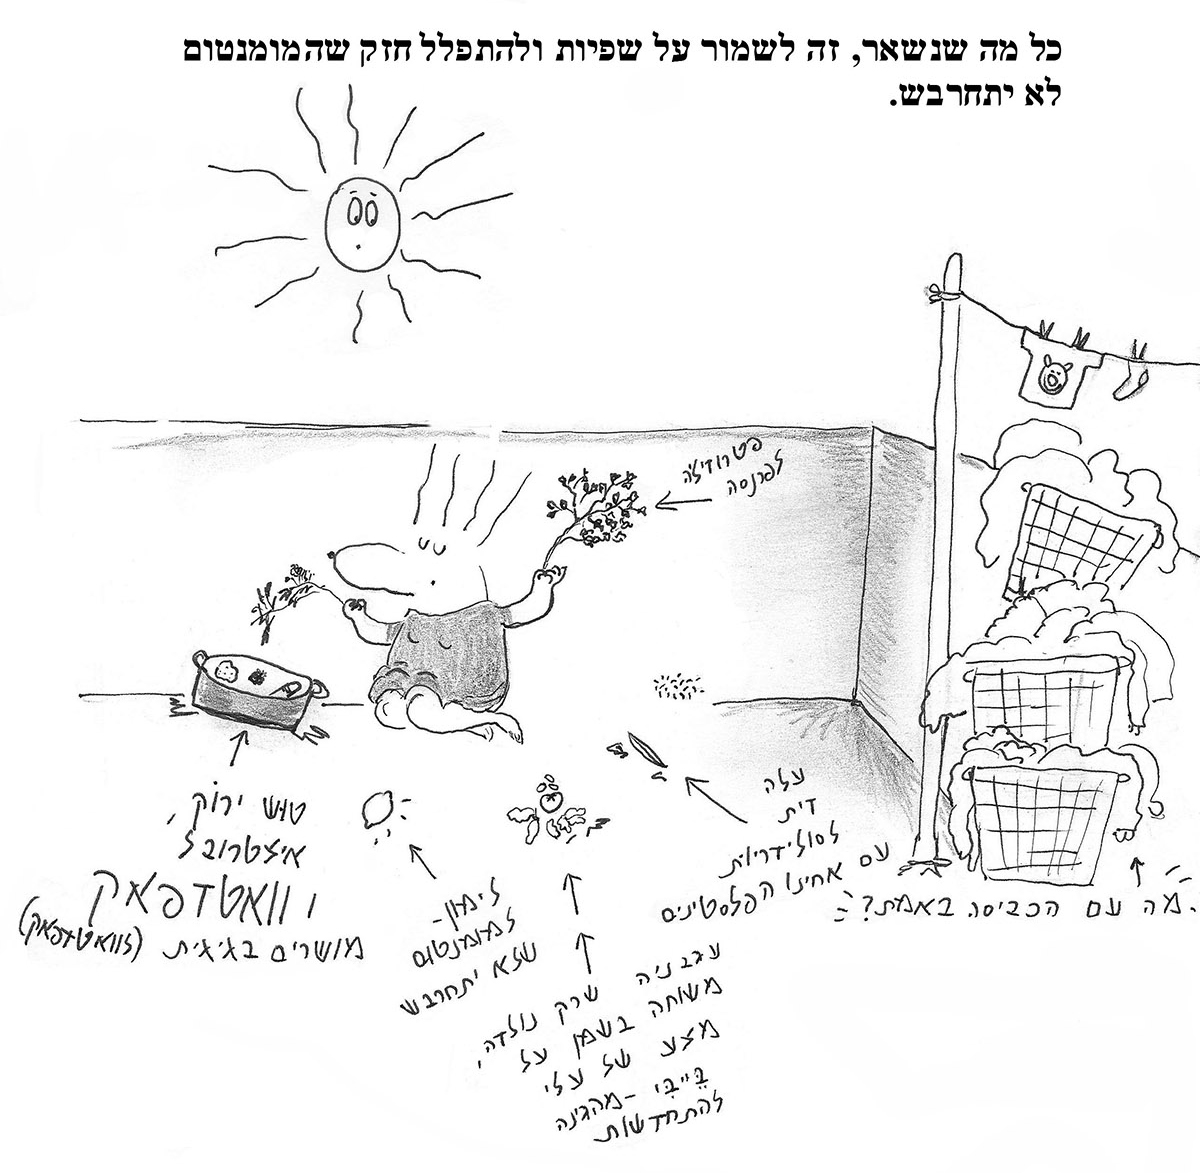 כל מה שנשאר, זה לשמור על שפיות ולהתפלל חזק שהמומנטום
לא יתחרבש.
פטרוזיליה
לפרנסה
טוש ירוק,
איצטרובל
ווואטדפאק
מושרים בגיגית (לוואטדפאק)
לימון-
למומנטום
שלא יתחרבש
עגבניה שרק נולדה,
משוחה בשמן על
מצע של עלי
בייבי - מהגינה
להתחדשות
עלה
זית
לסולידריות
עם אחינו הפלסטינים
מה עם הכביסה באמת?